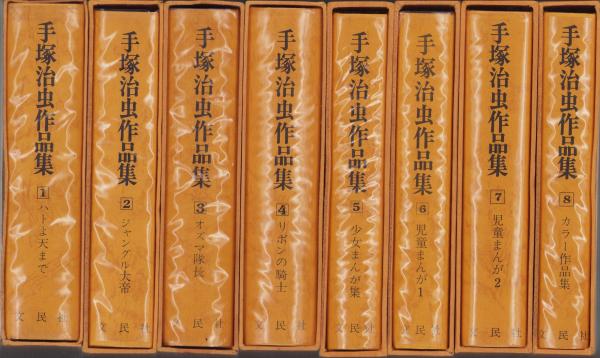 手塚治虫作品集
1
ハトよ天まで
文民社
手塚治虫作品集
2
ジャングル大帝
文民社
手塚治虫作品集
3
オズマ隊長
文民社
手塚治虫作品集
4
リボンの騎士
文民社
手塚治虫作品集
5
少女まんが集
文民社
手塚治虫作品集
6
児童まんが1
文民社
手塚治虫作品集
7
児童まんが2
文民社
手塚治虫作品集
8
カラー作品集
文民社